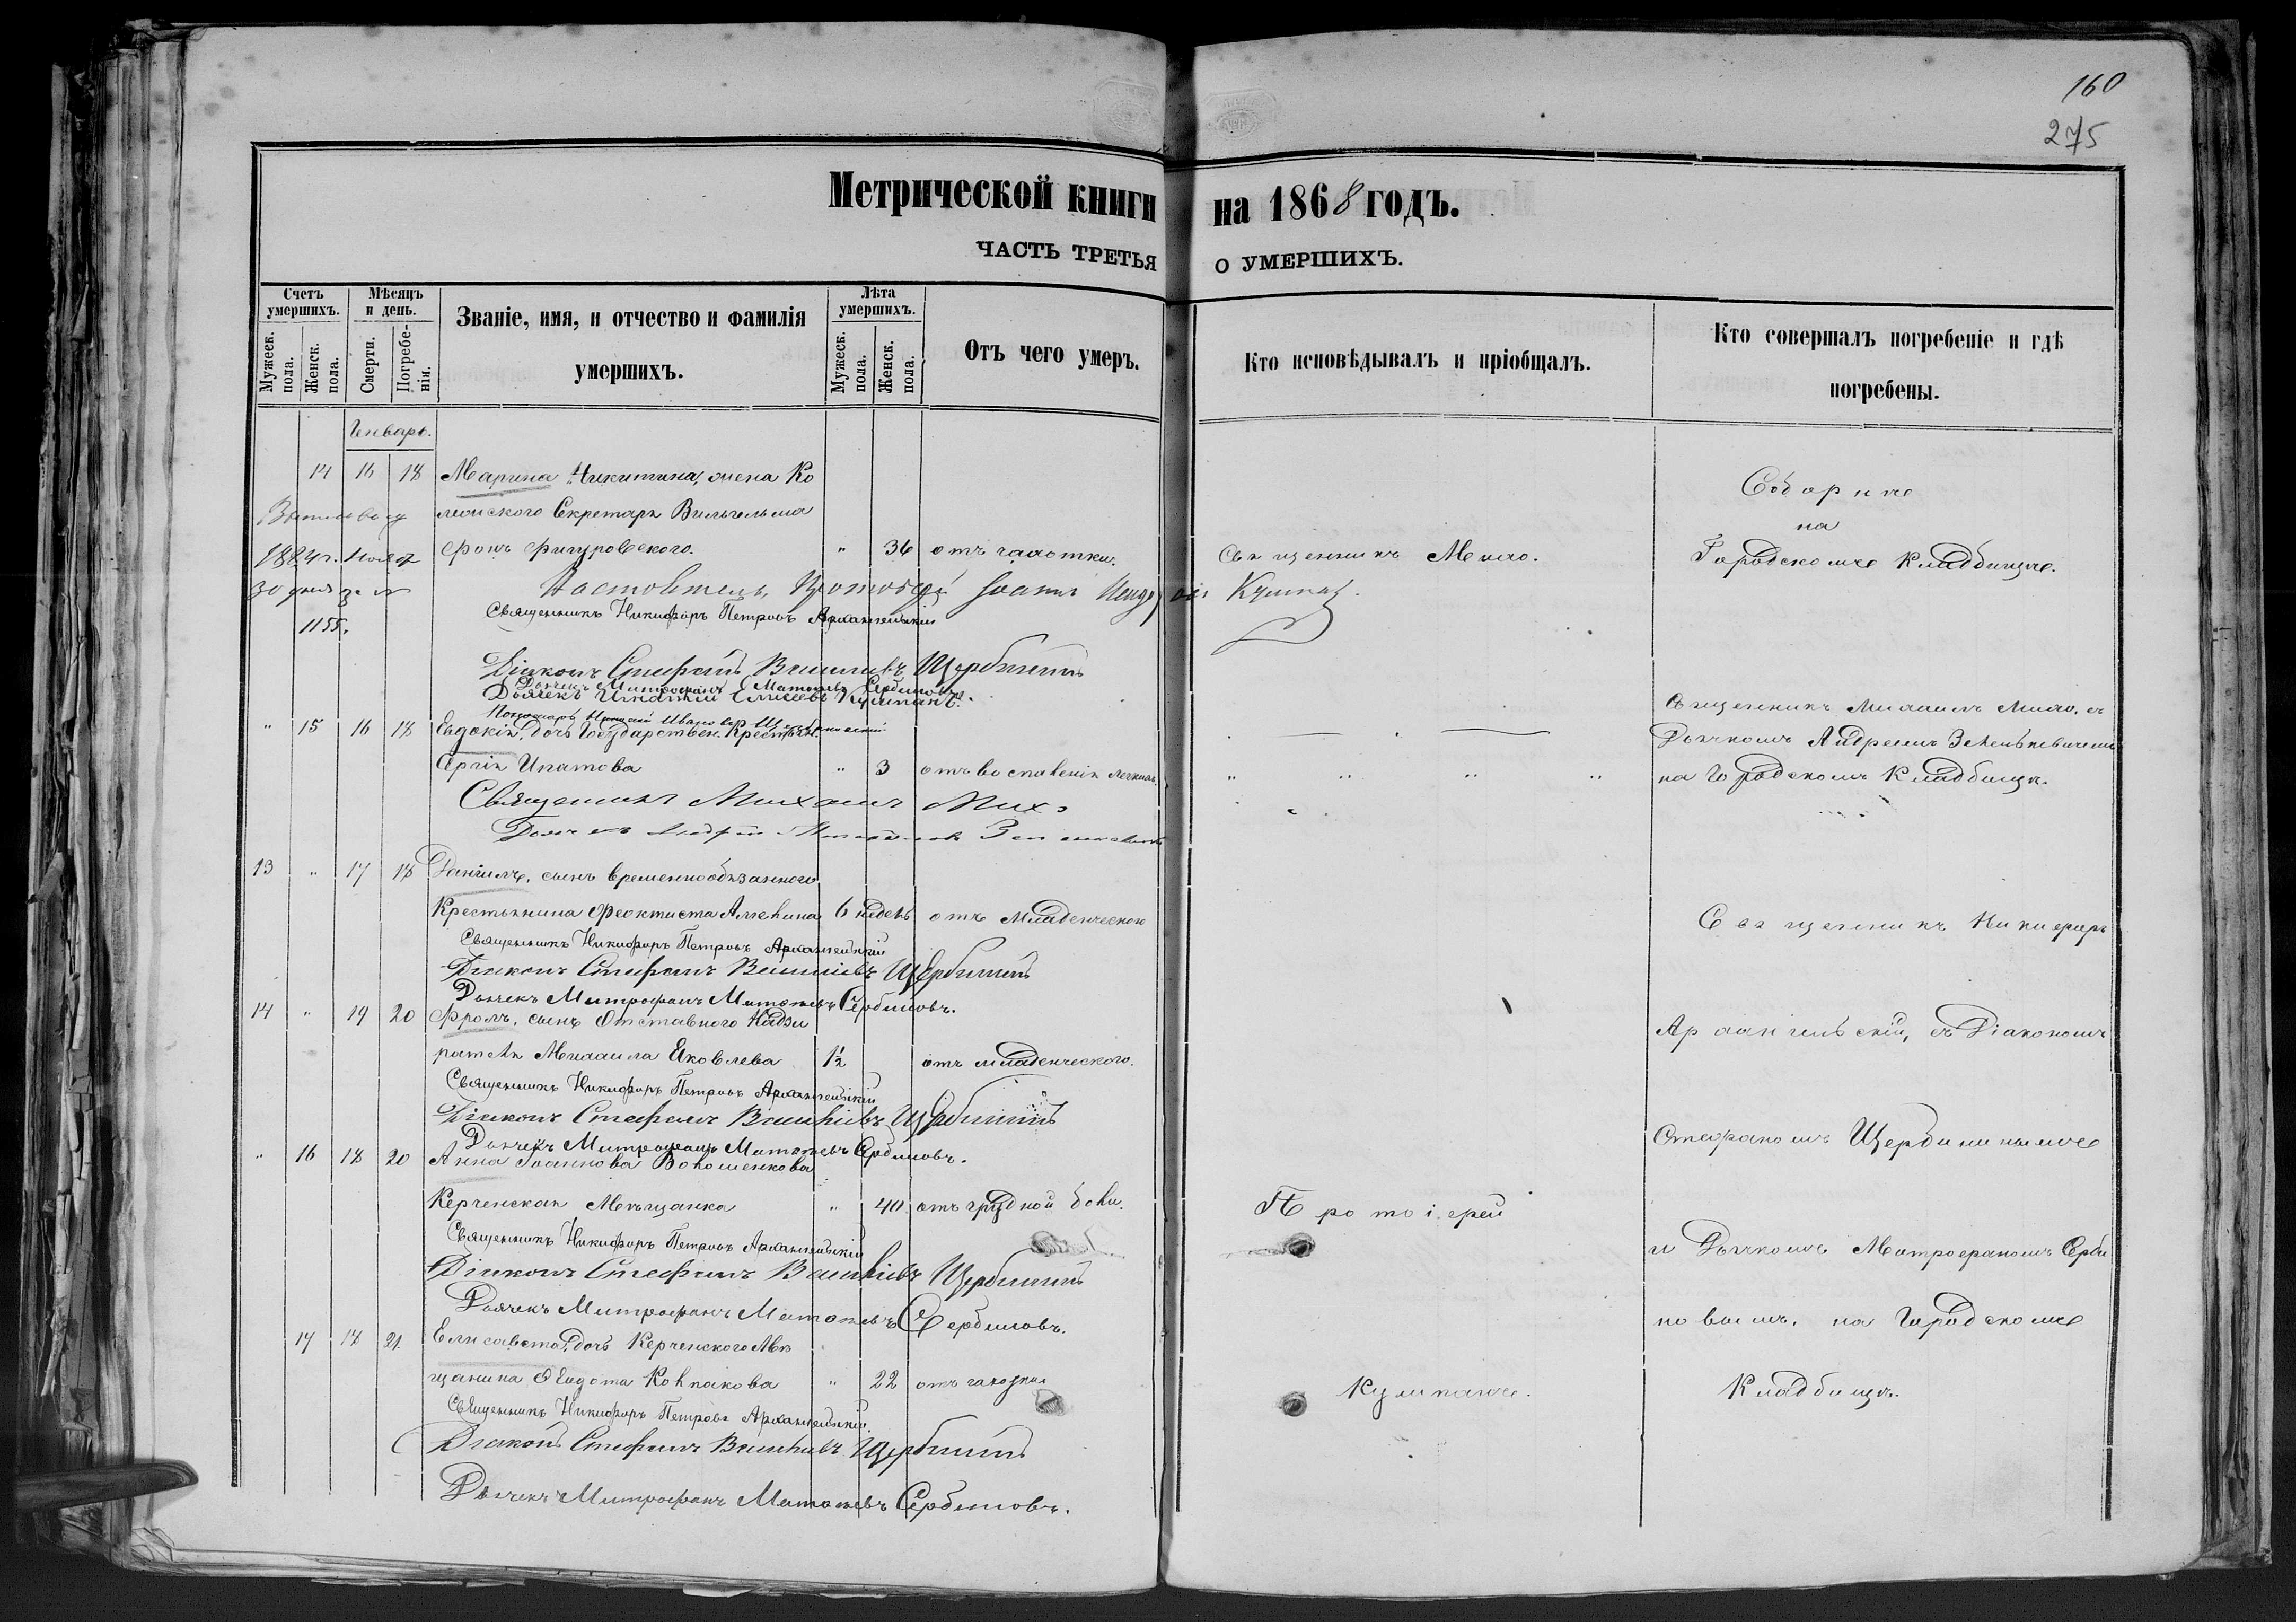 160
275
Метрической книги на 1868 годъ.
ЧАСТЬ ТРЕТЬЯ О УМЕРШИХЪ.
Счетъ умершихъ.
Мужеск. пола.
Женск. пола.
Мѣсяцъ и день.
Смерти.
Погребенія.
Званіе, имя, и отчество и фамилія
умершихъ.
Лѣта умершихъ.
Мужеск. пола.
Женск. пола.
Отъ чего умеръ.
Кто исповѣдывалъ и пріобщалъ.
Кто совершалъ погребеніе и гдѣ
погребены.
Генварь.
14 16 18 Марина Никитина, жена Ко
лежскаго Секретаря Вильгельма
фонъ Фигуровскаго. " 36 отъ чахотки. Священникъ Михо.
Соборне
на
Городскомъ Кладбище.
30 дня за №
1155.
Настоятель, Протоіерей Іоаннъ Кумпанъ.
Священникъ Никифоръ Петровъ Архангельскій
Діаконъ Стефанъ Щербининъ
Дьячекъ Митрофанъ Матвѣевъ Сербиновъ
Дьячекъ Игнатій Елисеевъ Кумпанъ.
" 15 16 18 Евдокія, дочь Государствен. Крестьян.
Сергія Ипатова " 3 отъ воспаленія легкихъ.
Священникъ Михаилъ Михо. съ
Дьячкомъ Андреемъ Зеленкевичемъ
на Городскомъ Кладбищѣ.
Священникъ Михаилъ Михо
Дьячекъ Андрей
13 " 17 18 Даніилъ, сынъ временнообязаннаго
Крестьянина Феоктиста Алехина 6 недель отъ Младенческаго
Священникъ Никифоръ Петровъ Архангельскій
Діаконъ Стефанъ Щербининъ
Дьячекъ Митрофанъ Матвѣевъ Сербиновъ.
14 " 19 20 Фролъ, сынъ Отставнаго Надзи
рателя Михаила Яковлева 1½ отъ младенческаго.
Священникъ Никифоръ Петровъ Архангельскій
Діаконъ Стефанъ Щербининъ
Дьячекъ Митрофанъ Матвѣевъ Сербиновъ.
" 16 18 20 Анна Іоаннова Волошенкова
Керченская Мѣщанка " 40 отъ грудной боли.
Священникъ Никифоръ Петровъ Архангельскій
Діаконъ Стефанъ Щербининъ
Дьячекъ Митрофанъ Матвѣевъ Сербиновъ.
17 18 21 Елисавета, дочь Керченскаго Мѣ
щанина Ѳедота Колпакова " 22 отъ чахотки
Священникъ Никифоръ Петровъ Архангельскій
Діаконъ Стефанъ Щербининъ
Дьячекъ Митрофанъ Матвѣевъ Сербиновъ.
Протоіерей
Кумпанъ.
Священникъ Никифоръ
Архангельскій, съ Діакономъ
Стефаномъ Щербининымъ
и Дьячкомъ Митрофаномъ Серби
новымъ. на Городскомъ
Кладбищѣ.